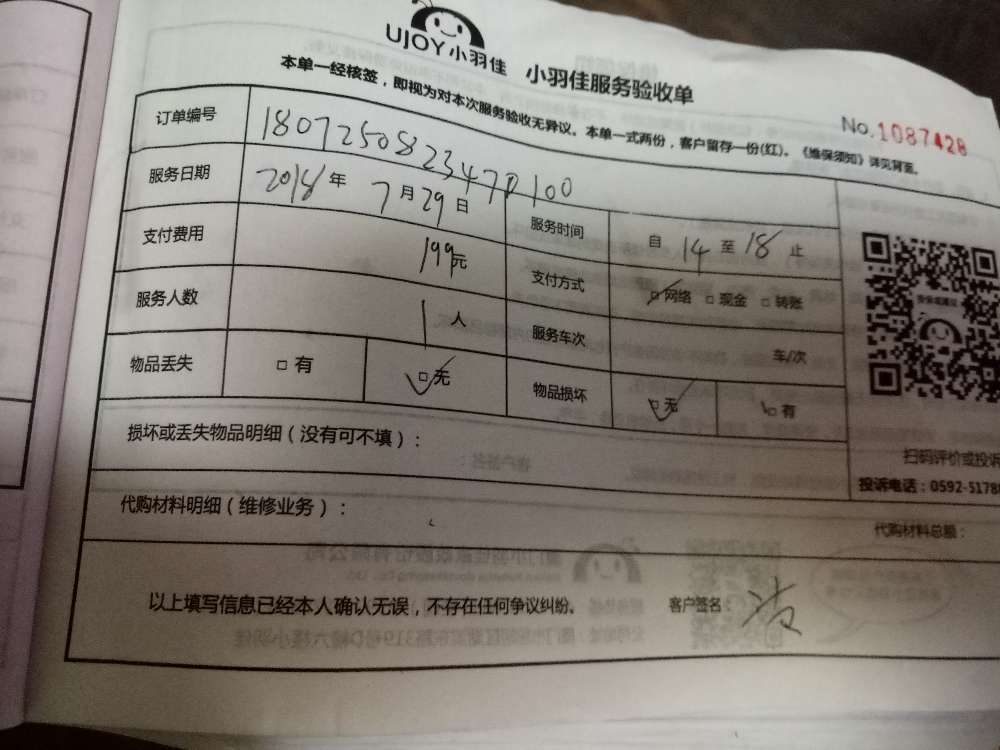 UJOY小羽佳 小羽佳服务验收单
本单一经核签，即视为对本次服务验收无异议。本单一式两份，客户留存一份(红)。《维保须知》详见背面。
No.1087428
订单编号 18072508234770100
服务日期 2018年 7月29日 服务时间 自 14 至 18 止
支付费用 199元 支付方式 □网络 □现金 □转账
服务人数 1人 服务车次 车/次
物品丢失 □有 □无 物品损坏 □无 □有
损坏或丢失物品明细（没有可不填）：
扫码评价或投诉
投诉电话：0592-5178
代购材料明细（维修业务）：
代购材料总额：
以上填写信息已经本人确认无误，不存在任何争议纠纷。 客户签名：